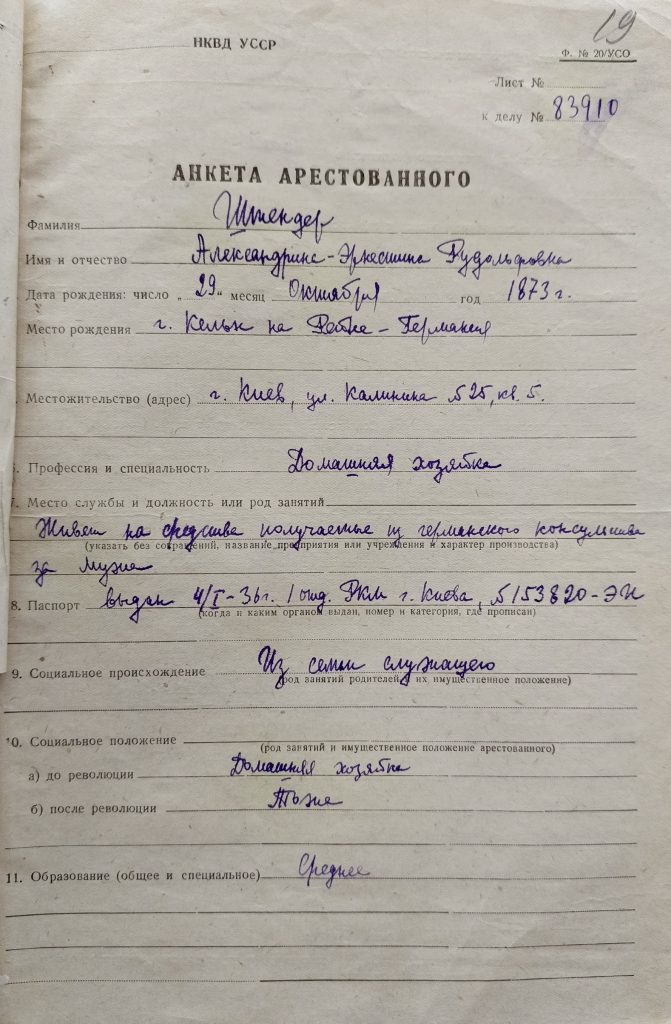 19
НКВД УССР
Ф. № 20/УСО
Лист №
к делу № 83910
АНКЕТА АРЕСТОВАННОГО
Фамилия Штендер
Имя и отчество Александрина-Эрнестина Рудольфовна
Дата рождения: число „29“ месяц Октября год 1873 г.
Место рождения г. Кельн на Рейне – Германия
Местожительство (адрес) г. Киев, ул. Калинина №25, кв. 5.
Профессия и специальность Домашняя хозяйка
7. Место службы и должность или род занятий
Живет на средства получаемые из германского консульства
(указать без сокращений, название предприятия или учреждения и характер производства)
за мужа
8. Паспорт выдан 4/I-36г. 1 отд. РКМ г. Киева, №153820-ЭН
(когда и каким органом выдан, номер и категория, где прописан)
9. Социальное происхождение Из семьи служащего
(род занятий родителей и их имущественное положение)
0. Социальное положение
(род занятий и имущественное положение арестованного)
а) до революции Домашняя хозяйка
б) после революции Тоже
11. Образование (общее и специальное) Среднее